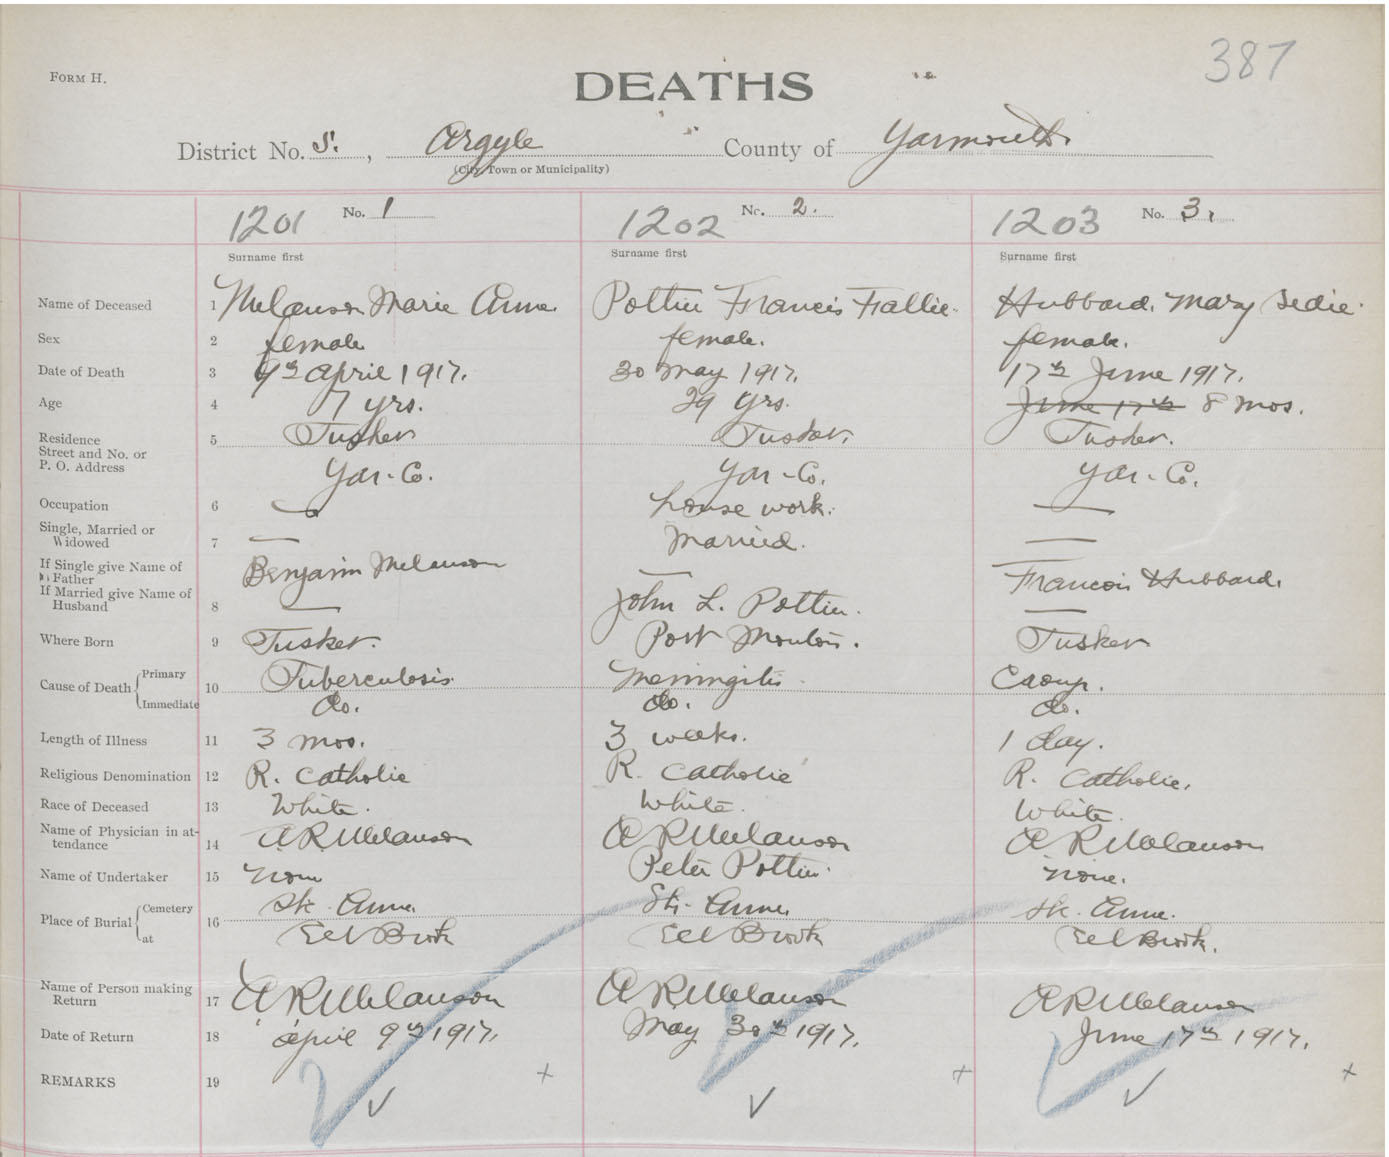 387
FORM H.
DEATHS
District No. 5. , Argyle County of Yarmouth.
(City, Town or Municipality)
1201 No. 1 1202 No. 2. 1203 No. 3.
Surname first Surname first Surname first
Name of Deceased 1 Melanson Marie Anne. Pottier Francis Hubbard. Mary Sedie.
Sex 2 female female. female.
Date of Death 3 9th April 1917. 30 May 1917. 17th June 1917.
Age 4 7 yrs. 29 yrs. June 17th 8 mos.
Residence 5 Tusket Tusket. Tusket.
Street and No. or
P. O. Address Yar-Co. Yar-Co. Yar-Co.
Occupation 6 — house work. —
Single, Married or
Widowed 7 — Married. —
If Single give Name of
Father Benjamin Melanson — Francois Hubbard.
If Married give Name of
Husband 8 — John L. Pottier. —
Where Born 9 Tusket. Port Mouton. Tusket
Cause of Death { Primary 10 Tuberculosis. Meningitis. Croup.
Immediate do. do. do.
Length of Illness 11 3 mos. 3 weeks. 1 day.
Religious Denomination 12 R. Catholic R. Catholic R. Catholic.
Race of Deceased 13 White. White. White.
Name of Physician in at-
tendance 14 A R Melanson A R Melanson A R Melanson
Name of Undertaker 15 None Peter Pottier. none.
Place of Burial { Cemetery 16 St. Anne. St. Anne. St. Anne.
at Eel Brook Eel Brook Eel Brook.
Name of Person making
Return 17 A R Melanson A R Melanson A R Melanson
Date of Return 18 April 9th 1917. May 30th 1917. June 17th 1917.
REMARKS 19